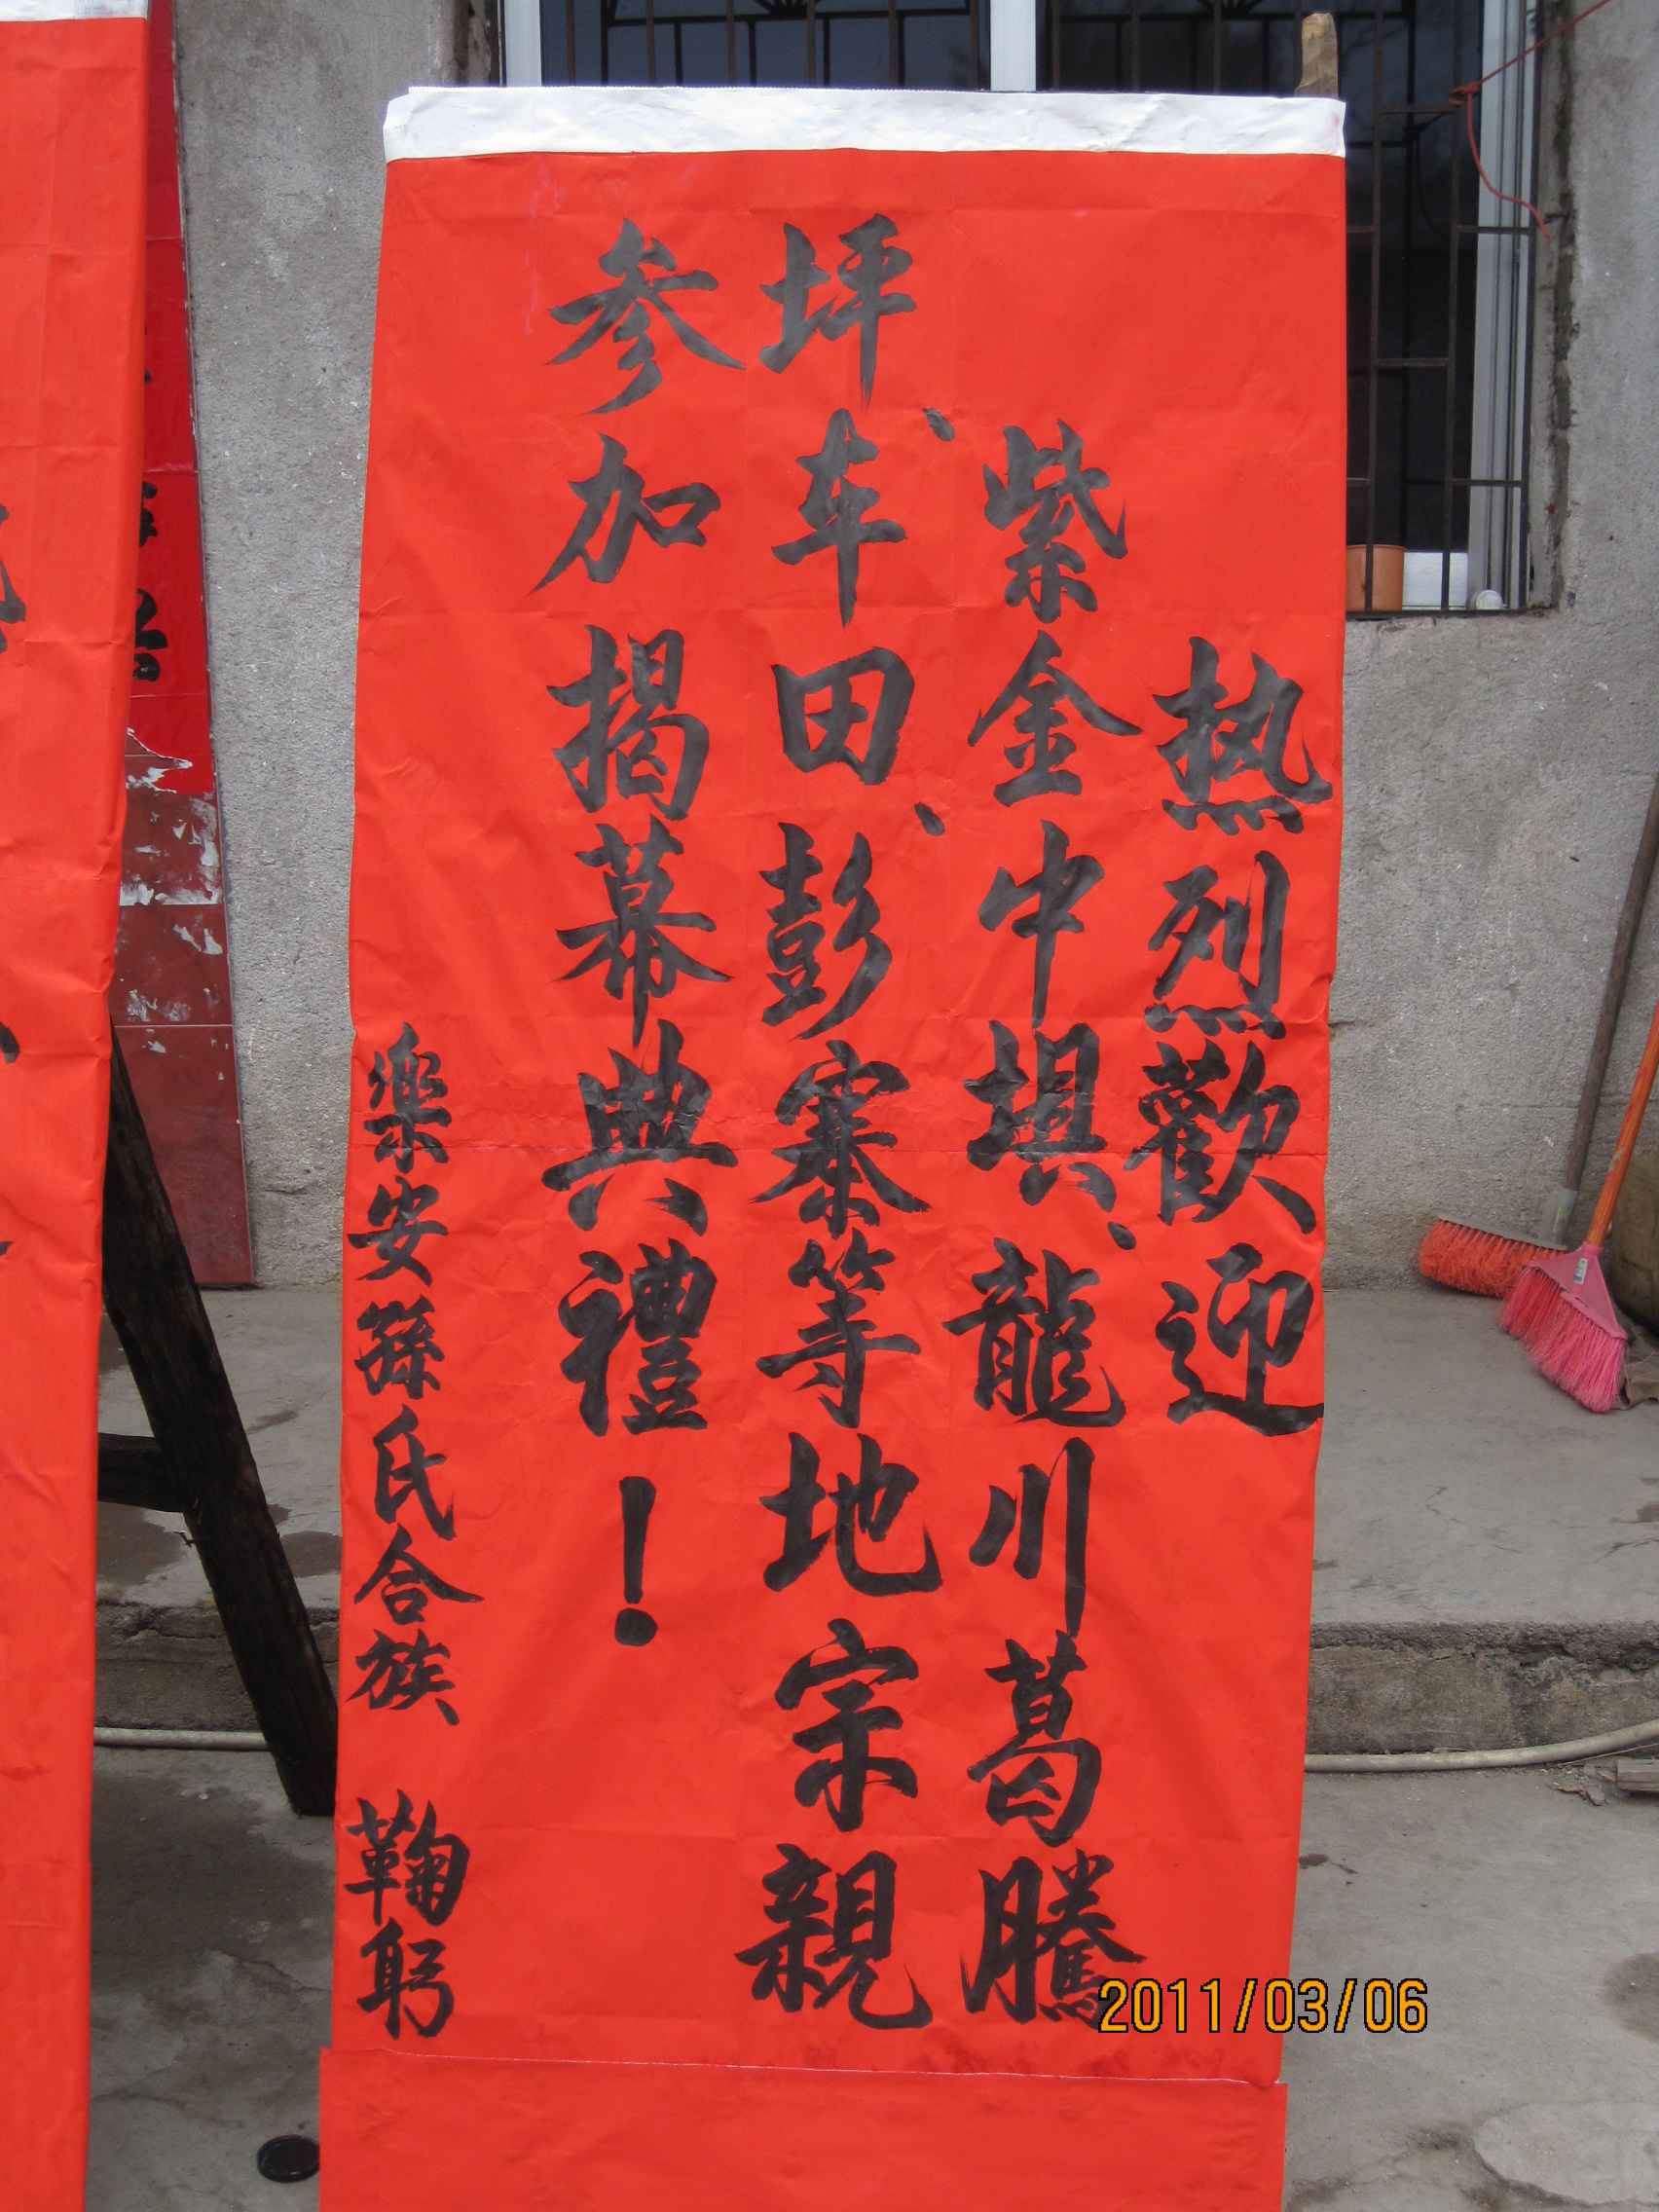 热烈歡迎
紫金中埧、龍川葛騰
坪、车田、彭寨等地宗親
参加揭幕典禮！
樂安孫氏合族 鞠躬
2011/03/06